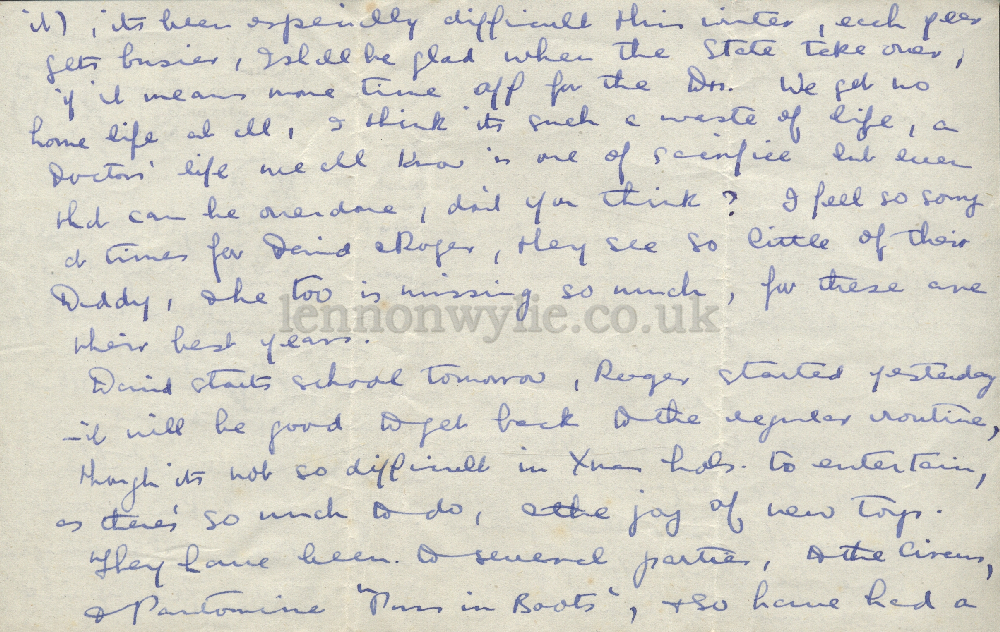 it), its been especially difficult this winter, each year
gets busier, I shall be glad when the State take over,
if it means more time off for the Drs. We get no
home life at all, I think its such a waste of life, a
Doctors' life we all know is one of sacrifice but even
that can be overdone, don't you think? I feel so sorry
at times for David & Roger, they see so little of their
Daddy, & he too is missing so much, for these are
their best years.
lennonwylie.co.uk
David starts school tomorrow, Roger started yesterday
– it will be good to get back to the regular routine,
though its not so difficult in Xmas hols. to entertain,
as there's so much to do, & the joy of new toys.
They have been to several parties, to the Circus,
& Pantomine "Puss in Boots", & so have had a